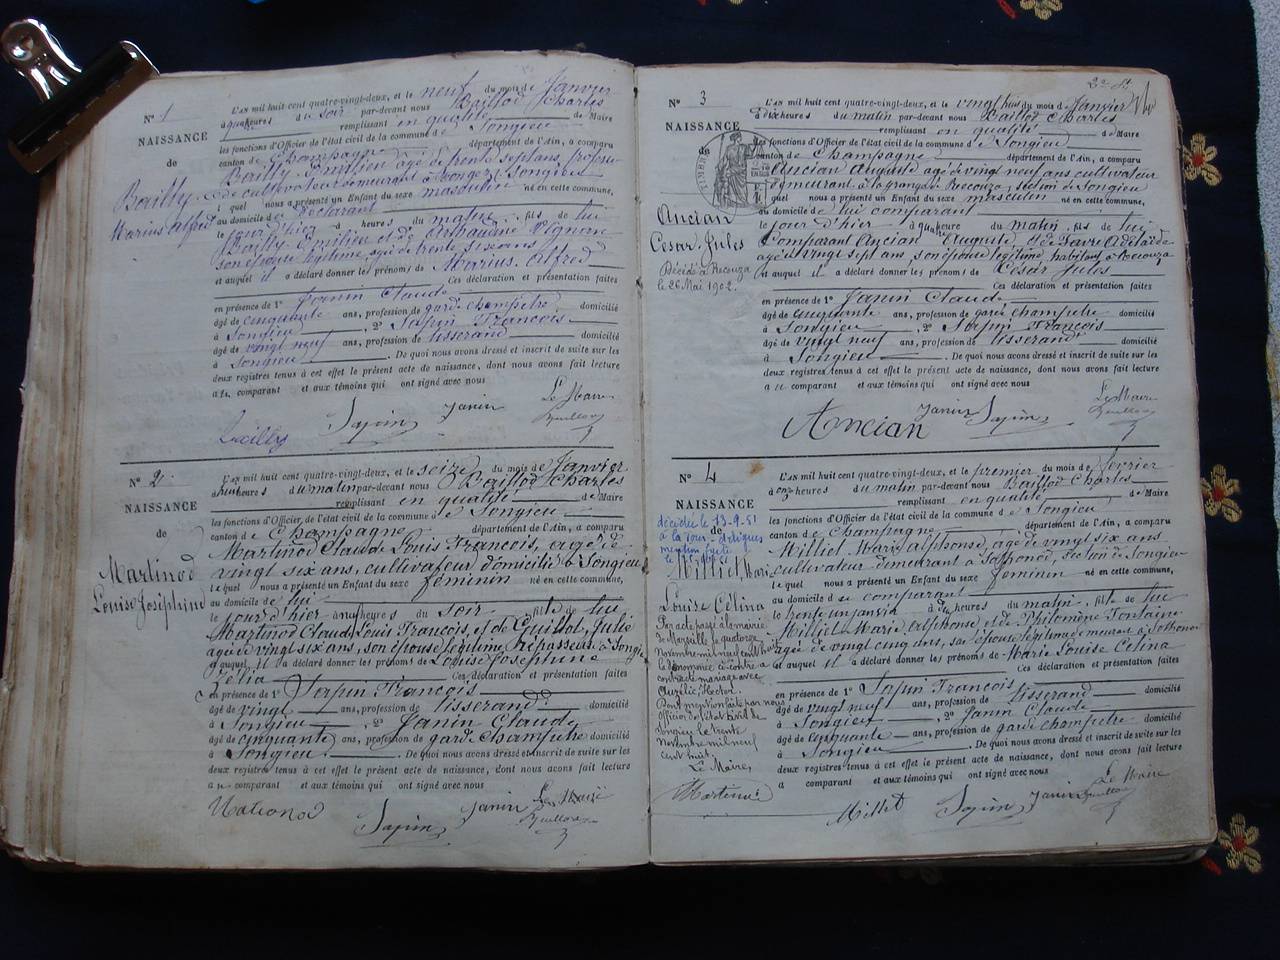 N° 1
NAISSANCE
de
Bailly
Marius Alfred
L'AN mil huit cent quatre-vingt-deux, et le neuf du mois de Janvier
à heures du soir par-devant nous Baillod Charles
remplissant en qualité de Maire
les fonctions d'Officier de l'état civil de la commune de Songieu
canton de Champagne département de l'Ain, a comparu
Bailly âgé de trente sept ans,
cultivateur demeurant à Songieu
lequel nous a présenté un Enfant du sexe masculin né en cette commune,
au domicile de déclarant
le jour d'hier à heures du matin, fils de lui
Bailly et de
son épouse légitime âgée de trente six ans
et auquel il a déclaré donner les prénoms de Marius Alfred
Ces déclaration et présentation faites
en présence de 1° Janin Claude
âgé de cinquante ans, profession de garde champêtre domicilié
à Songieu, 2° Sapin François
âgé de vingt neuf ans, profession de tisserand domicilié
à Songieu. De quoi nous avons dressé et inscrit de suite sur les
deux registres tenus à cet effet le présent acte de naissance, dont nous avons fait lecture
au comparant et aux témoins qui ont signé avec nous
Le Maire
Bailly Sapin Janin
N° 2
NAISSANCE
de
Martinod
Louise Joséphine
L'AN mil huit cent quatre-vingt-deux, et le seize du mois de Janvier
à huit heures du matin par-devant nous Baillod Charles
remplissant en qualité de Maire
les fonctions d'Officier de l'état civil de la commune de Songieu
canton de Champagne département de l'Ain, a comparu
Martinod Claude Louis François, âgé de
vingt six ans, cultivateur domicilié à Songieu
lequel nous a présenté un Enfant du sexe féminin né en cette commune,
au domicile de lui
le jour d'hier à heures du soir, fille de lui
Martinod Claude Louis François, et de Guillot, Julie
âgée de vingt six ans, son épouse légitime, Repasseuse à Songieu
et auquel il a déclaré donner les prénoms de Louise Joséphine
Célia Ces déclaration et présentation faites
en présence de 1° Sapin François
âgé de vingt ans, profession de tisserand domicilié
à Songieu, 2° Janin Claude
âgé de cinquante ans, profession de garde champêtre domicilié
à Songieu. De quoi nous avons dressé et inscrit de suite sur les
deux registres tenus à cet effet le présent acte de naissance, dont nous avons fait lecture
au comparant et aux témoins qui ont signé avec nous
Le Maire
Sapin Janin
N° 3
NAISSANCE
de
Ancian
César Jules
Décédé à Recouza
le 26 Mai 1902.
L'AN mil huit cent quatre-vingt-deux, et le vingt du mois de Janvier
à dix heures du matin par-devant nous Baillod Charles
remplissant en qualité de Maire
les fonctions d'Officier de l'état civil de la commune de Songieu
canton de Champagne département de l'Ain, a comparu
Ancian Auguste âgé de vingt neuf ans cultivateur
demeurant à la grange de Recouza, section de Songieu
lequel nous a présenté un Enfant du sexe masculin né en cette commune,
au domicile de lui comparant
le jour d'hier à quatre heures du matin, fils de lui
comparant Ancian Auguste et de Favre Adélaïde
âgée vingt sept ans, son épouse légitime, habitant à Recouza
et auquel il a déclaré donner les prénoms de César Jules
Ces déclaration et présentation faites
en présence de 1° Janin Claude,
âgé de cinquante ans, profession de garde champêtre domicilié
à Songieu, 2° Sapin François
âgé de vingt neuf ans, profession de tisserand domicilié
à Songieu. De quoi nous avons dressé et inscrit de suite sur les
deux registres tenus à cet effet le présent acte de naissance, dont nous avons fait lecture
au comparant et aux témoins qui ont signé avec nous
Le Maire
Ancian Janin Sapin
N° 4
NAISSANCE
de
décédée le 13-9-51
à la
Milliet, Marie
Louise Célina
Par acte passé à la mairie
de Marseille le quatorze
Novembre mil neuf cent huit
la dénommée ci-contre a
contracté mariage avec
Aurélic Hector.
Dont mention faite par nous
Officier de l'état civil de
Songieu le trente
Novembre mil neuf
cent huit.
Le Maire,
L'AN mil huit cent quatre-vingt-deux, et le premier du mois de février
à onze heures du matin par-devant nous Baillod Charles
remplissant en qualité de Maire
les fonctions d'Officier de l'état civil de la commune de Songieu
canton de Champagne département de l'Ain, a comparu
Milliet Marie alphonse, âgé de vingt six ans
cultivateur demeurant à Sothonod, section de Songieu
lequel nous a présenté un Enfant du sexe féminin né en cette commune,
au domicile de comparant
le trente un janvier à heures du matin, fille de lui
Milliet Marie alphonse et de Philomène Fontaine
âgée de vingt cinq ans, son épouse légitime demeurant à Sothonod
et auquel il a déclaré donner les prénoms de Marie Louise Célina
Ces déclaration et présentation faites
en présence de 1° Sapin François
âgé de vingt neuf ans, profession de tisserand domicilié
à Songieu, 2° Janin Claude
âgé de cinquante ans, profession de garde champêtre domicilié
à Songieu. De quoi nous avons dressé et inscrit de suite sur les
deux registres tenus à cet effet le présent acte de naissance, dont nous avons fait lecture
au comparant et aux témoins qui ont signé avec nous
Le Maire
Milliet Sapin Janin